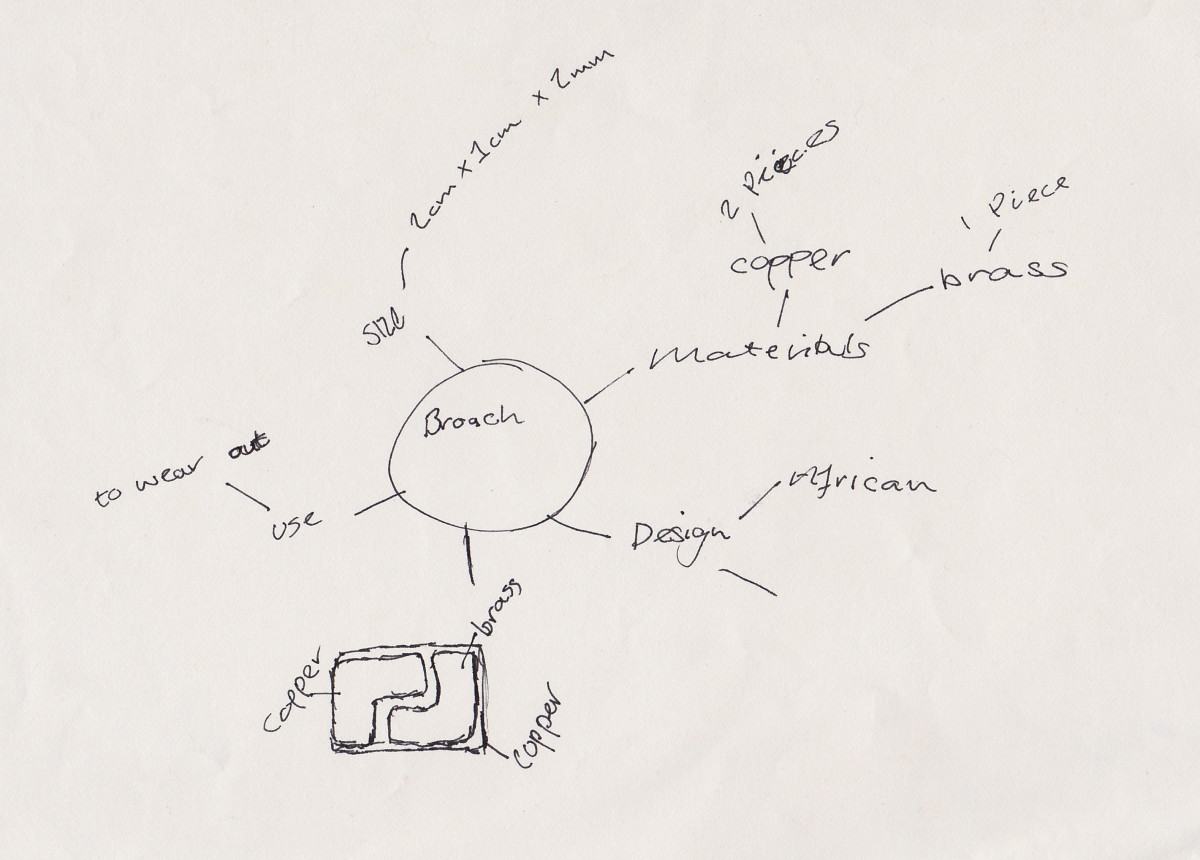 2cm x 1cm x 2mm
size
2 pieces
copper
1 Piece
brass
Materials
Broach
African
Design
to wear out
use
brass
Copper
Copper